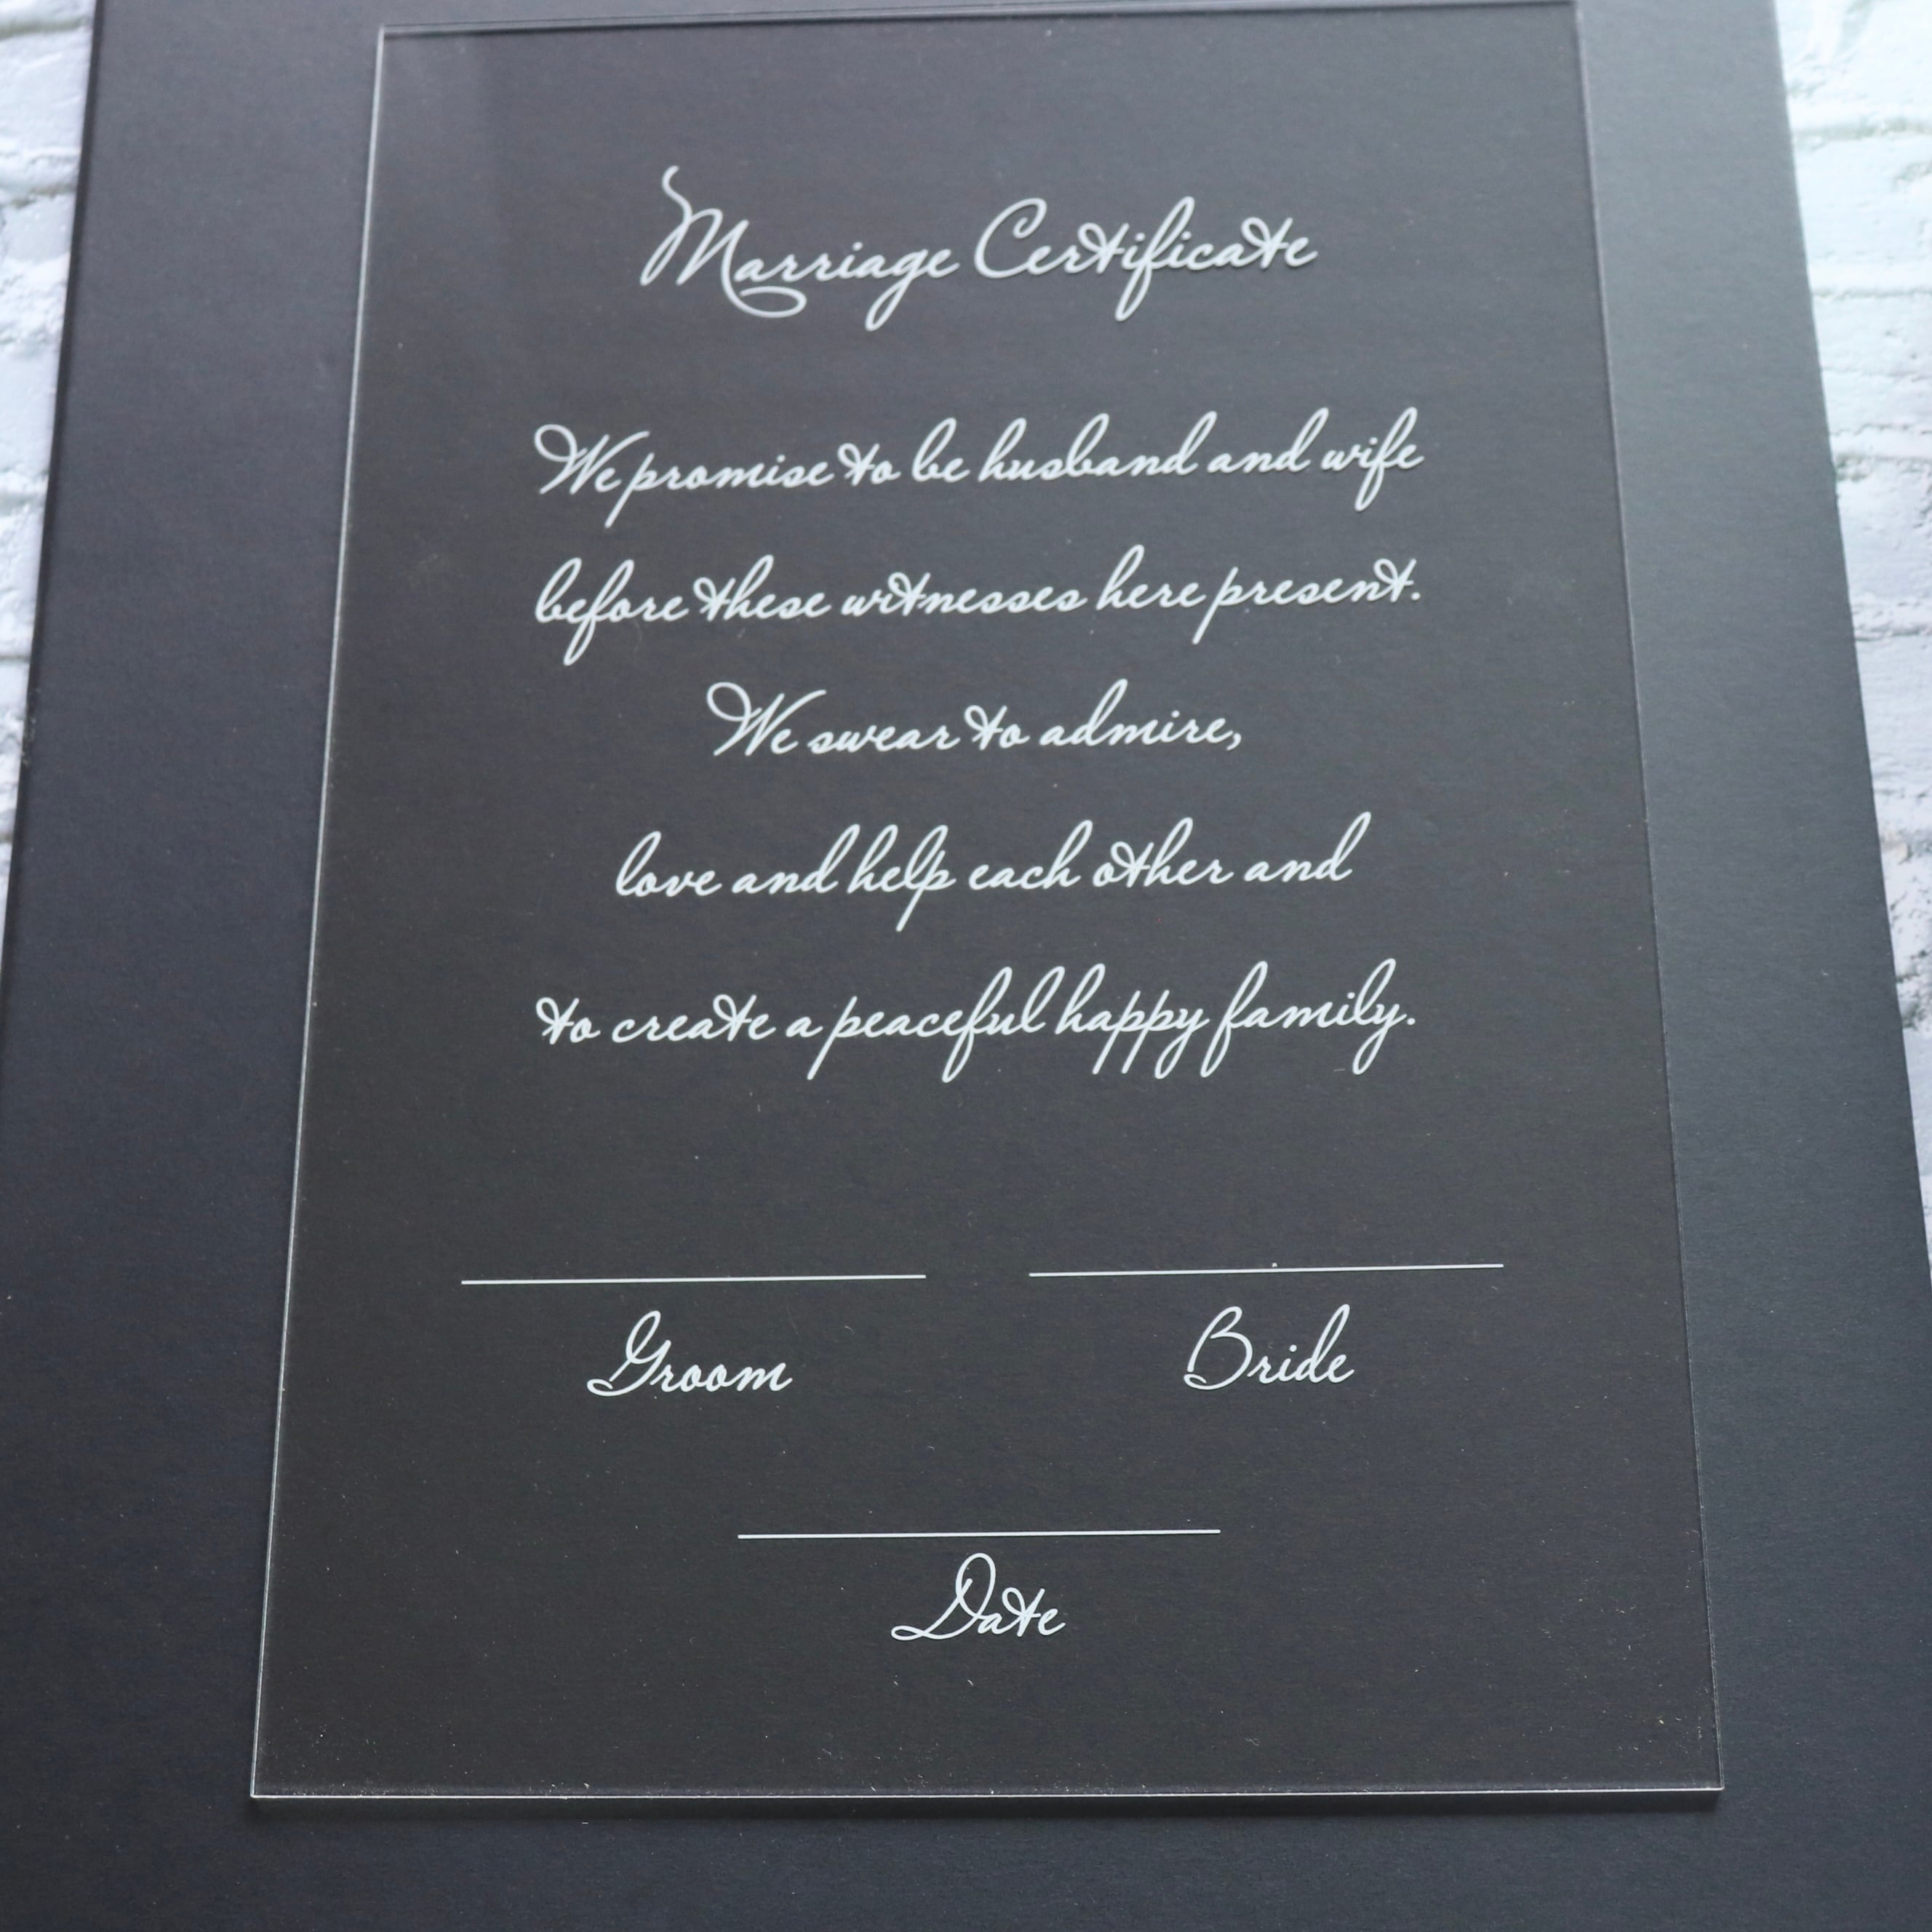 Marriage Certificate
We promise to be husband and wife
before these witnesses here present.
We swear to admire,
love and help each other and
to create a peaceful happy family.
Groom Bride
Date